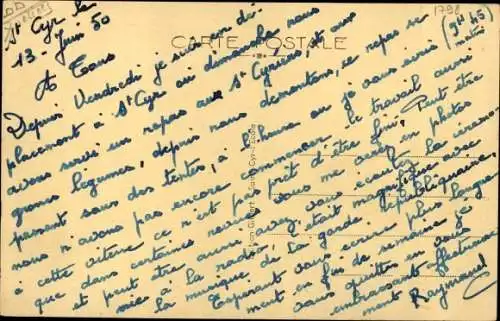 1798
St Cyr le
(9h 45
matin)
13 - Juin 50
CARTE POSTALE
A Tous
Depuis Vendredi je suis en dé-
placement à St Cyr où dimanche nous
avons servi un repas aux St Cyriens, et aux
grosses légumes, depuis nous démontons, ce repas se
passent sous des tentes, à l'heure où je vous écris
nous n'avons pas encore commencer le travail aussi
à cette vitesse ce n'est pas prêt d'être fini. Peut être
que dans certaines revues vous me verrez en photos
et peut être aussi avez vous écouter la cérémo-
nie à la radio, c'était magnifique avec
la musique de la garde républicaine
Espérant vous écrire plus longue-
ment en fin de semaine je
vous quittes en vous
embrassant affectueuse-
ment Raymond